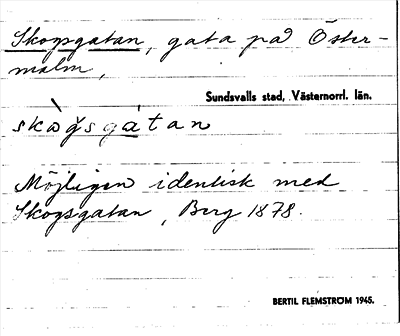 Skogsgatan, gata på Öster-
malm,
Sundsvalls stad, Västernorrl. län.
skògsgatan
Möjligen identisk med
Skogsgatan, Berg 1878.
BERTIL FLEMSTRÖM 1945.